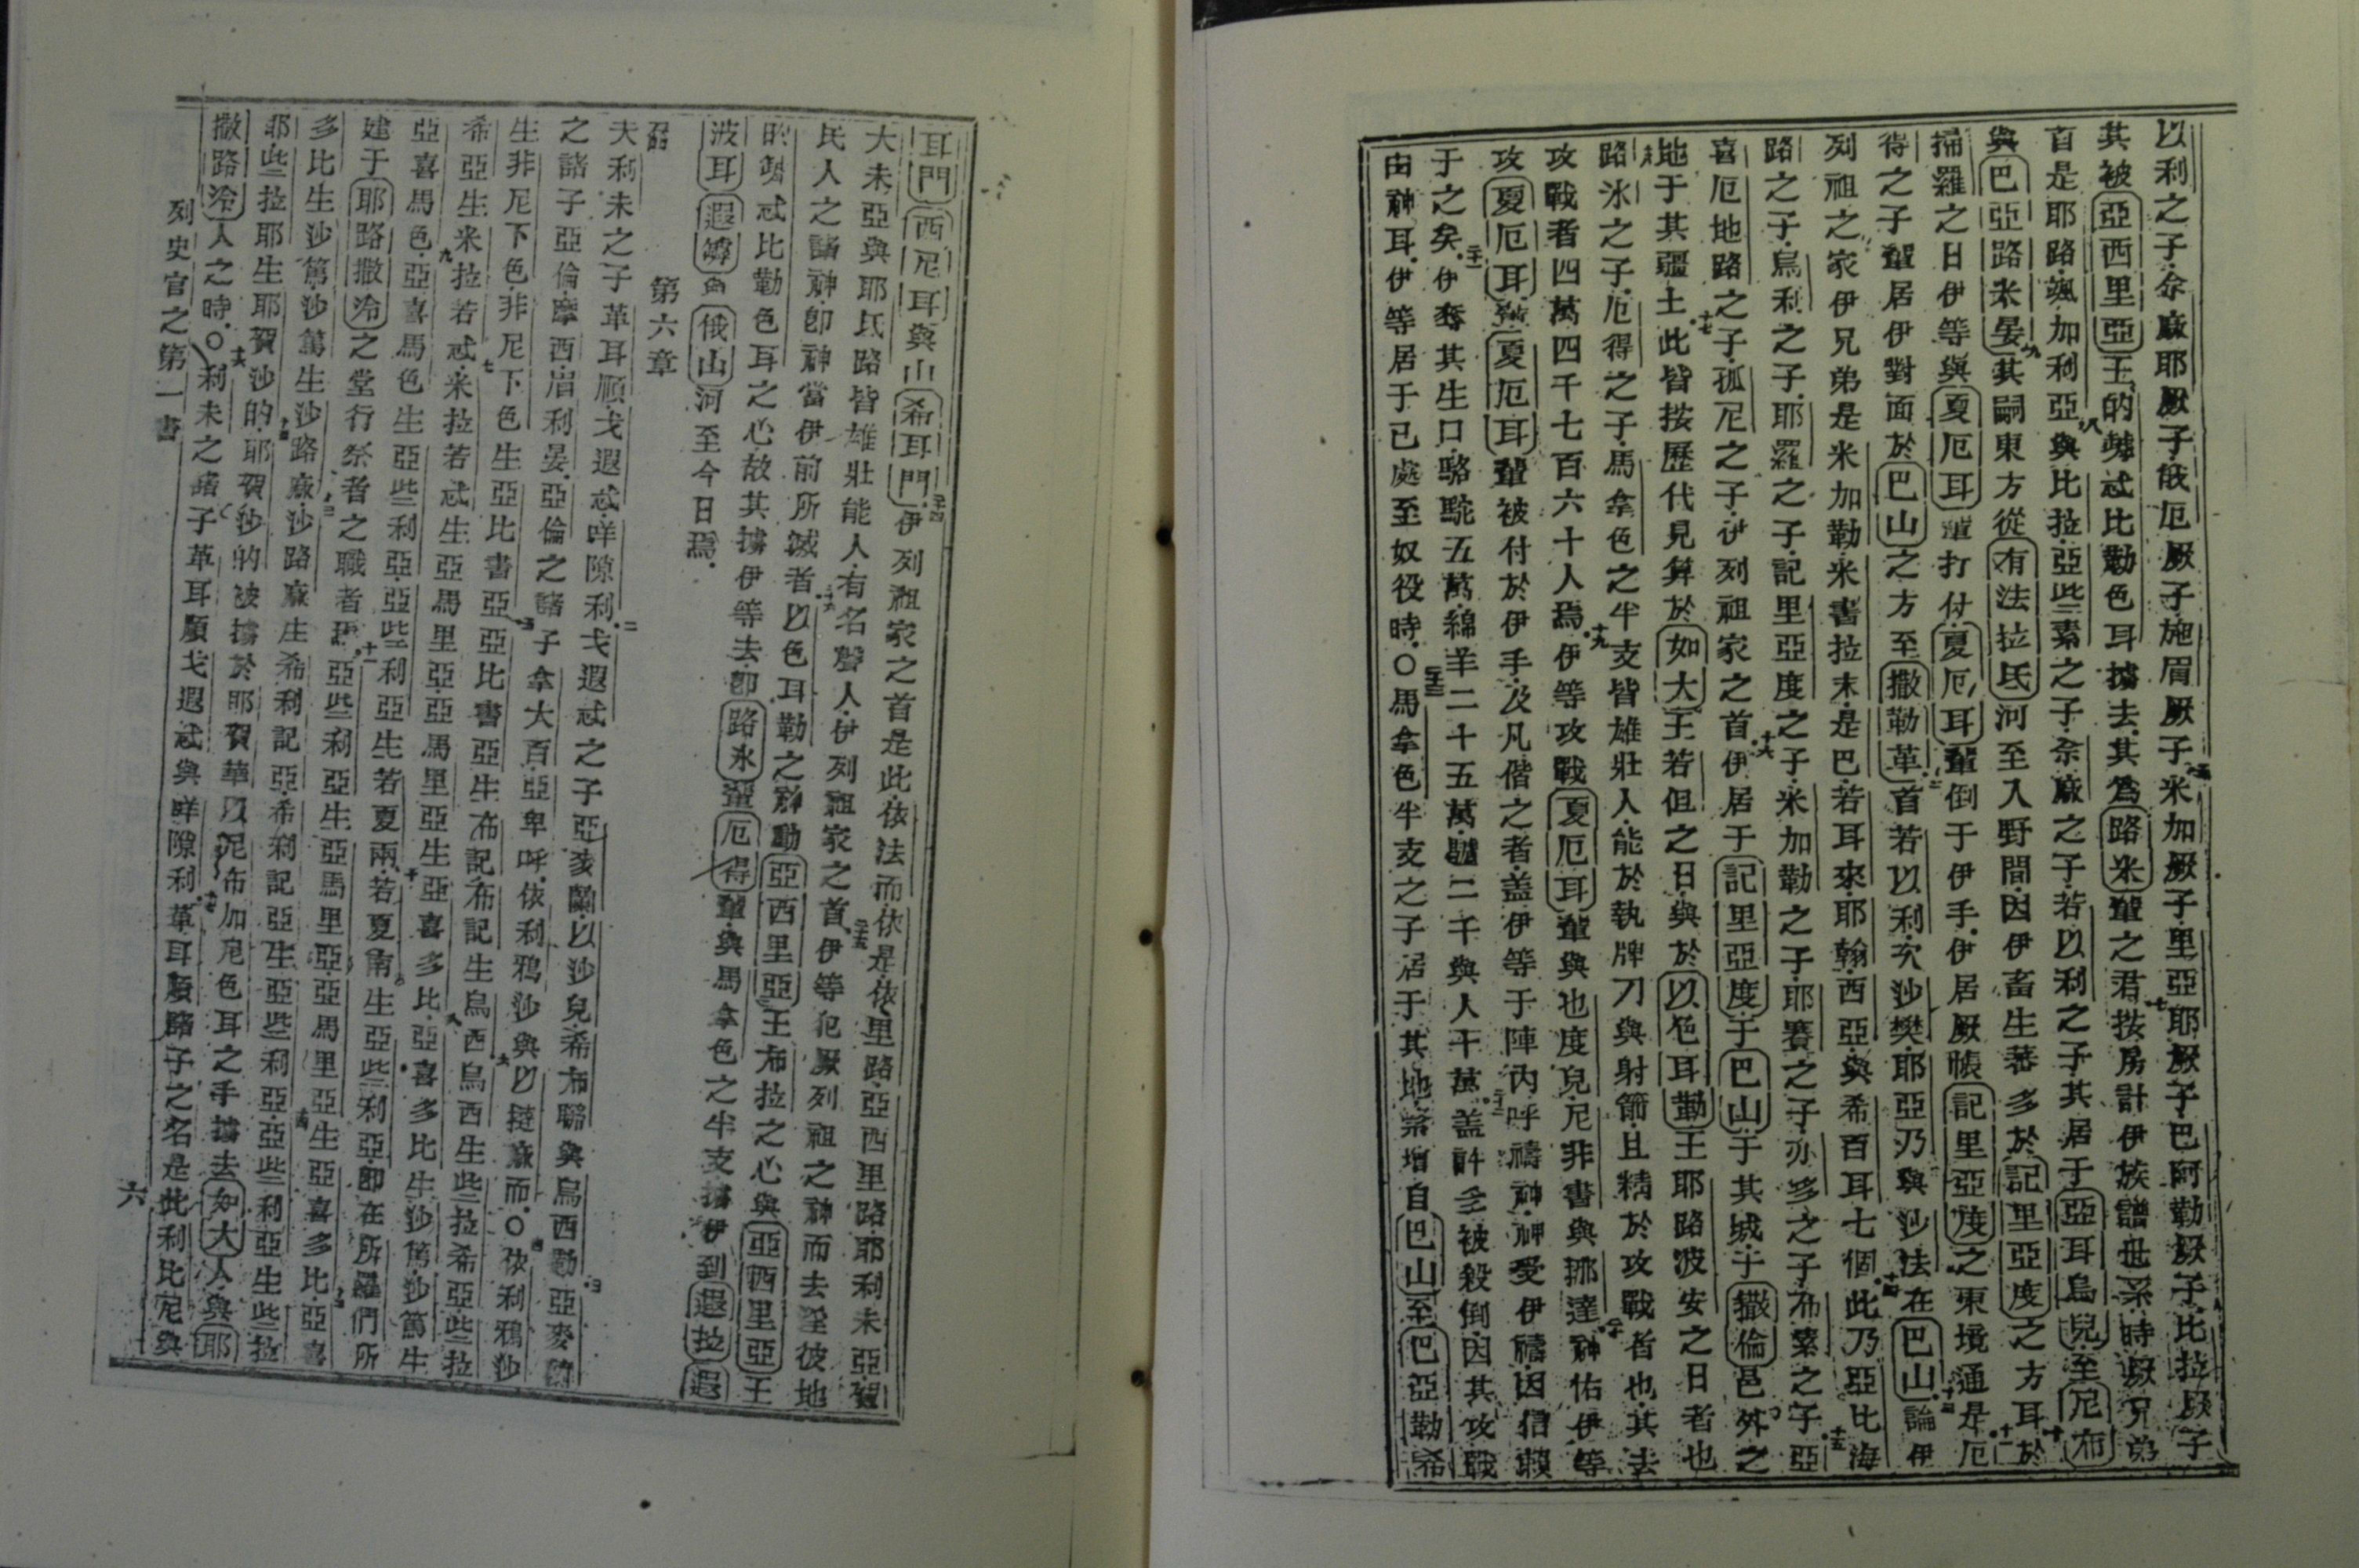 以利之子余廠耶厥子俄厄厥子施眉厥子米加厥子里亞耶厥子巴阿勒厥子比拉厥子
其被亞西里亞王的忒比勒色耳擄去其為路米輩之君按房計伊族譜世系時厥兄弟
首是耶路颯加利亞與比拉亞些素之子余廠之子若以利之子其居于亞耳烏兒至尼布
與巴亞路米晏其嗣東方從有法拉氐河至入野間因伊畜生蕃多於記里亞度之方耳於
掃羅之日伊等與夏厄耳輩打仗夏厄耳輩倒于伊手伊居厥帳記里亞度之東境通是厄
得之子輩居伊對面於巴山之方至撒勒革首若以利次沙樊耶亞乃與沙法在巴山論伊
列祖之家伊兄弟是米加勒米書拉末是巴若耳來耶翰西亞與希百耳七個此乃亞比海
路之子烏利之子耶羅之子記里亞度之子米加勒之子耶賽之子亦多之子布素之子亞
喜厄地路之子孤尼之子伊列祖家之首伊居于記里亞度于巴山于其城于撒倫邑外之
地于其疆土此皆按歷代見算於如大王若但之日與於以色耳勒王耶路波安之日者也
路氷之子厄得之子馬拿色之半支皆雄壯人能於執牌刀與射箭且精於攻戰者也其去
攻戰者四萬四千七百六十人焉伊等攻戰夏厄耳輩與也度兒尼非書與挪達神佑伊等
攻夏厄耳夏厄耳輩被付於伊手及凡偕之者盖伊等于陣內呼禱神神受伊禱因信賴
于之矣伊奪其生口駱駝五萬綿羊二十五萬驢二千與人十萬盖許多被殺倒因其攻戰
由神耳伊等居于已處至奴役時〇馬拿色半支之子居于其地蕃增自巴山至巴亞勒希
耳門西尼耳與山希耳門伊列祖家之首是此依法而依是依里路亞西里路耶利未亞賀
大未亞與耶氐路皆雄壯能人有名聲人伊列祖家之首伊等犯厥列祖之神而去淫彼地
民人之諸神即神當伊前所滅者以色耳勒之神動亞西里亞王布拉之心與亞西里亞王
的忒比勒色耳之心故其擄伊等去即路氷輩厄得輩與馬拿色之半支擄伊到遐拉遐
波耳遐與俄山河至今日焉
第六章
夫利未之子革耳順戈遐忒咩隙利戈遐忒之子亞麥蘭以沙兒希布聯與烏西勒亞麥蘭
之諸子亞倫摩西眉利晏亞倫之諸子拿大百亞卑呼依利鴉沙與以撻麻而〇依利鴉沙
生非尼下色非尼下色生亞比書亞亞比書亞生布記布記生烏西烏西生些拉希亞些拉
希亞生米拉若忒米拉若忒生亞馬里亞亞馬里亞生亞喜多比亞喜多比生沙篤沙篤生
亞喜馬色亞喜馬色生亞些利亞亞些利亞生若夏南若夏南生亞些利亞即在所羅們所
建于耶路撒冷之堂行祭者之職者焉亞些利亞生亞馬里亞亞馬里亞生亞喜多比亞喜
多比生沙篤沙篤生沙路麻沙路麻生希利記亞希利記亞生亞些利亞亞些利亞生些拉
耶些拉耶生耶賀沙的耶賀沙的被擄於耶賀華以尼布加尼色耳之手擄去如大人與耶
撒路冷人之時〇利未之諸子革耳順戈遐忒與咩隙利革耳順諸子之名是此利比尼與
列史官之第一書
六